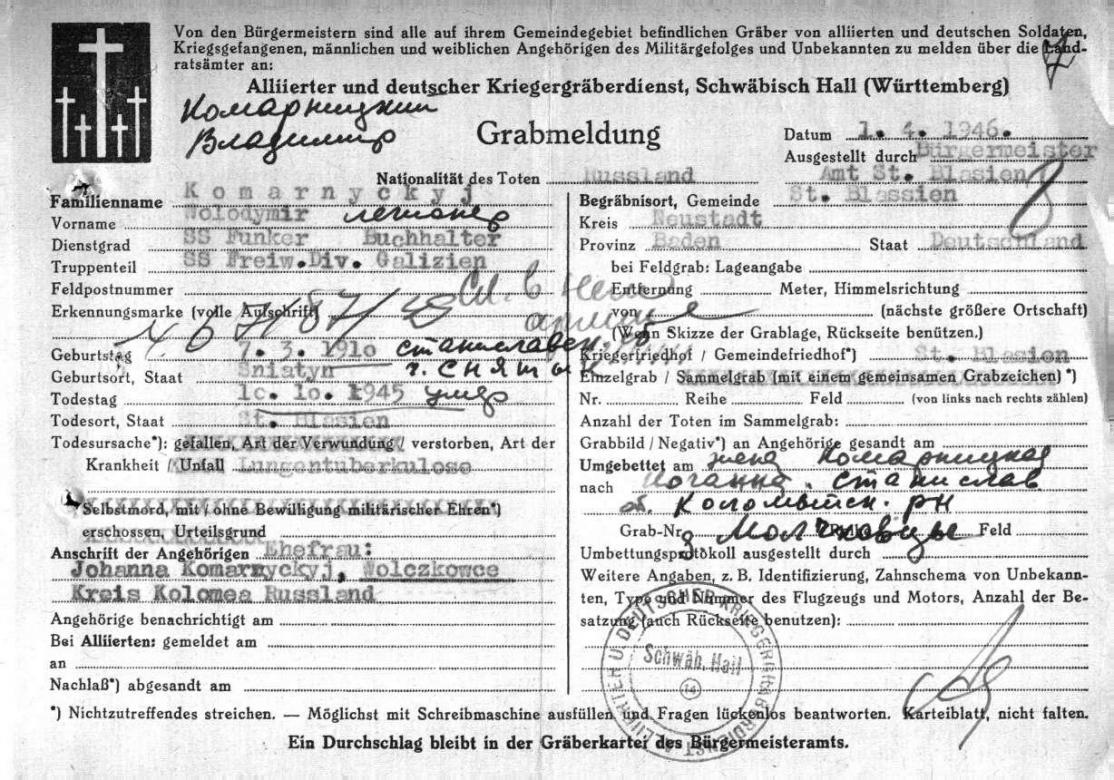 Von den Bürgermeistern sind alle auf ihrem Gemeindegebiet befindlichen Gräber von alliierten und deutschen Soldaten,
Kriegsgefangenen, männlichen und weiblichen Angehörigen des Militärgefolges und Unbekannten zu melden über die Land-
ratsämter an:
Alliierter und deutscher Kriegergräberdienst, Schwäbisch Hall (Württemberg)
Комарницкий
Владимир
Grabmeldung
Datum 1. 4. 1946.
Ausgestellt durch Bürgermeister
Amt St. Blasien
Nationalität des Toten Russland
Familienname Komarnyckyj
Vorname Wolodymir
Dienstgrad SS Funker Buchhalter
Truppenteil SS Freiw.Div. Galizien
Feldpostnummer
Erkennungsmarke (volle Aufschrift)
Geburtstag 7. 3. 1910 станиславск. об
Geburtsort, Staat Sniatyn г. Снятын
Todestag 10. 10. 1945 умер
Todesort, Staat St. Blasien
Todesursache*): gefallen, Art der Verwundung / verstorben, Art der
Krankheit / Unfall Lungentuberkulose
Selbstmord, mit / ohne Bewilligung militärischer Ehren*)
erschossen, Urteilsgrund
Anschrift der Angehörigen Ehefrau:
Johanna Komarnyckyj, Wolczkowce
Kreis Kolomea Russland
Angehörige benachrichtigt am
Bei Alliierten: gemeldet am
an
Nachlaß*) abgesandt am
Begräbnisort, Gemeinde St. Blassien
Kreis Neustadt
Provinz Baden Staat Deutschland
bei Feldgrab: Lageangabe
Entfernung Meter, Himmelsrichtung
von (nächste größere Ortschaft)
(Wenn Skizze der Grablage, Rückseite benützen.)
Kriegerfriedhof / Gemeindefriedhof*) St. Blasien
Einzelgrab / Sammelgrab (mit einem gemeinsamen Grabzeichen) *)
Nr. Reihe Feld (von links nach rechts zählen)
Anzahl der Toten im Sammelgrab:
Grabbild / Negativ*) an Angehörige gesandt am
Umgebettet am жена Комарницкая
nach Иоганна. Станислав
об. Коломыйск. рн
Grab-Nr. Feld
Umbettungsprotokoll ausgestellt durch
Weitere Angaben, z. B. Identifizierung, Zahnschema von Unbekann-
ten, Type und Nummer des Flugzeugs und Motors, Anzahl der Be-
satzung (auch Rückseite benutzen):
ALLIIERTER U. DEUTSCHER KRIEGERGRÄBERDIENST
Schwäb. Hall
14
*) Nichtzutreffendes streichen. — Möglichst mit Schreibmaschine ausfüllen und Fragen lückenlos beantworten. Karteiblatt, nicht falten.
Ein Durchschlag bleibt in der Gräberkartei des Bürgermeisteramts.